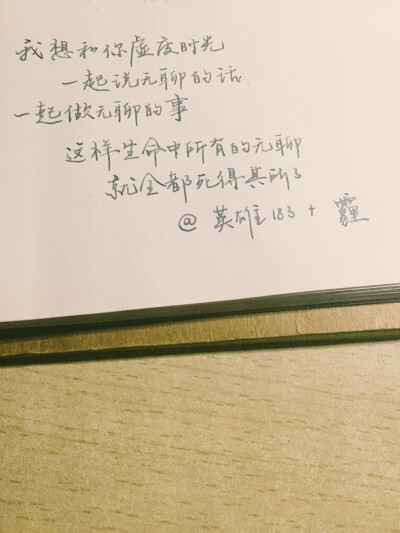 我想和你虚度时光
一起说无聊的话
一起做无聊的事
这样生命中所有的无聊
就全都死得其所了
@ 英雄主183 + 霾